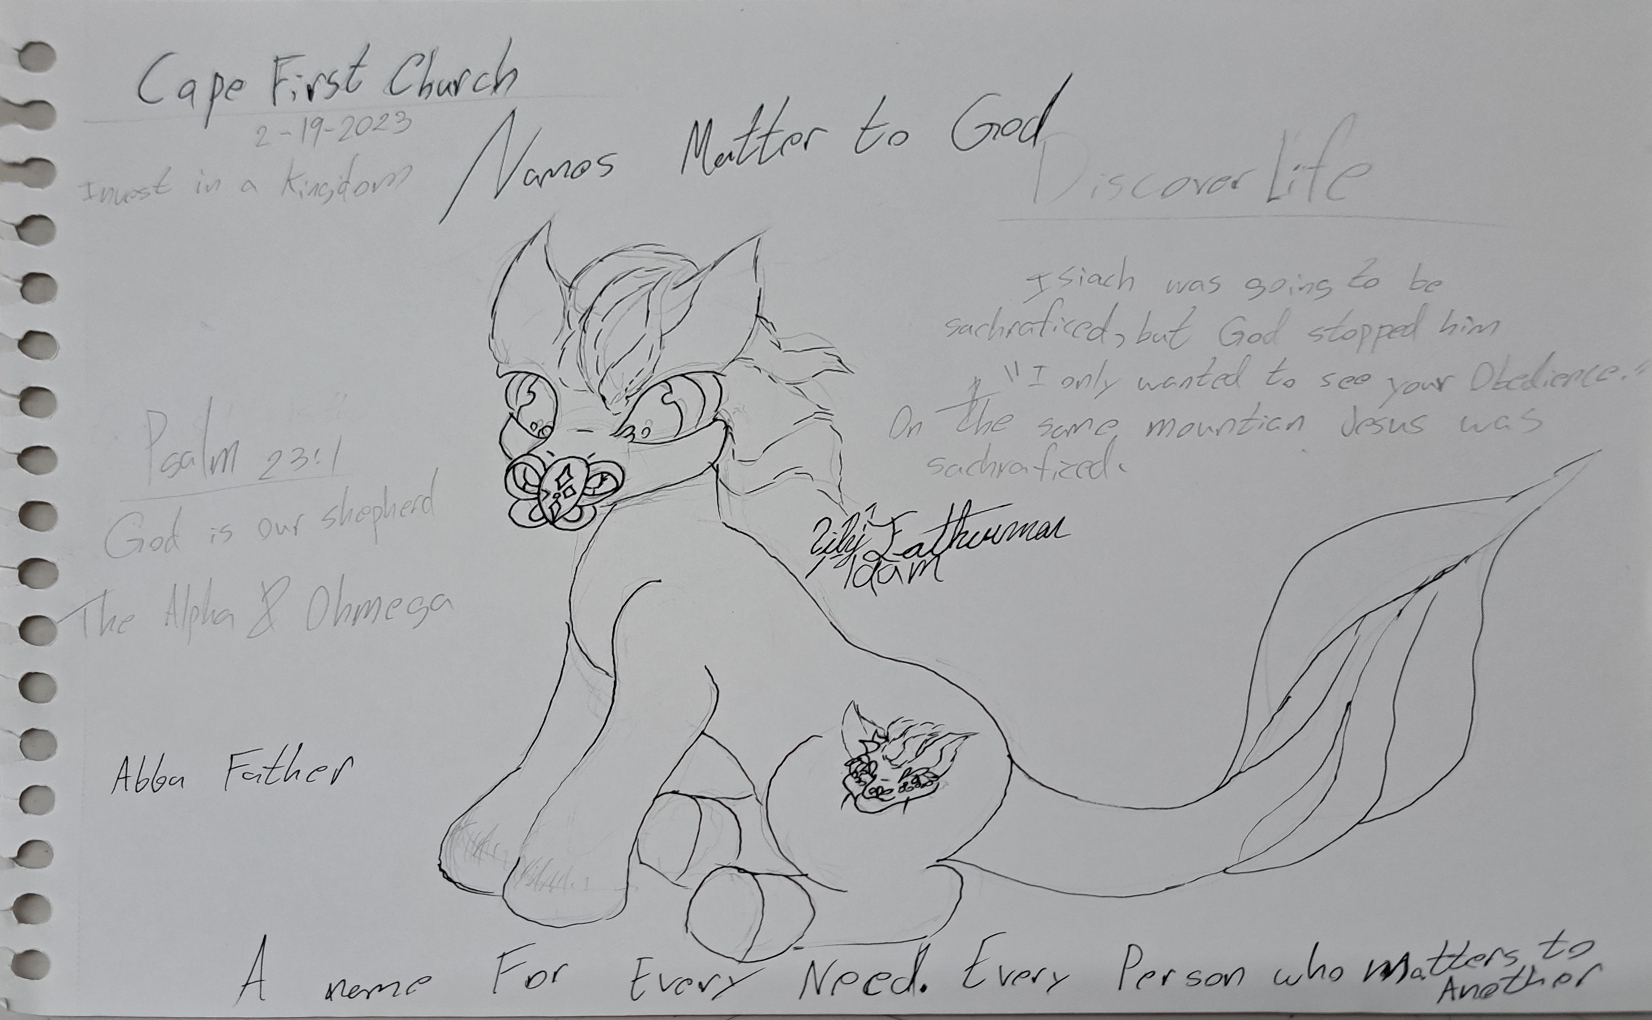 Cape First Church
2-19-2023
Invest in a Kingdom
Names Matter to God
Discover Life
Isiach was going to be
sachraficed, but God stopped him
"I only wanted to see your Obedience."
On the same mountian Jesus was
sachraficed.
Psalm 23:1
God is our shepherd
The Alpha & Ohmega
Adam
Abba Father
A name For Every Need. Every Person who matters to
Another